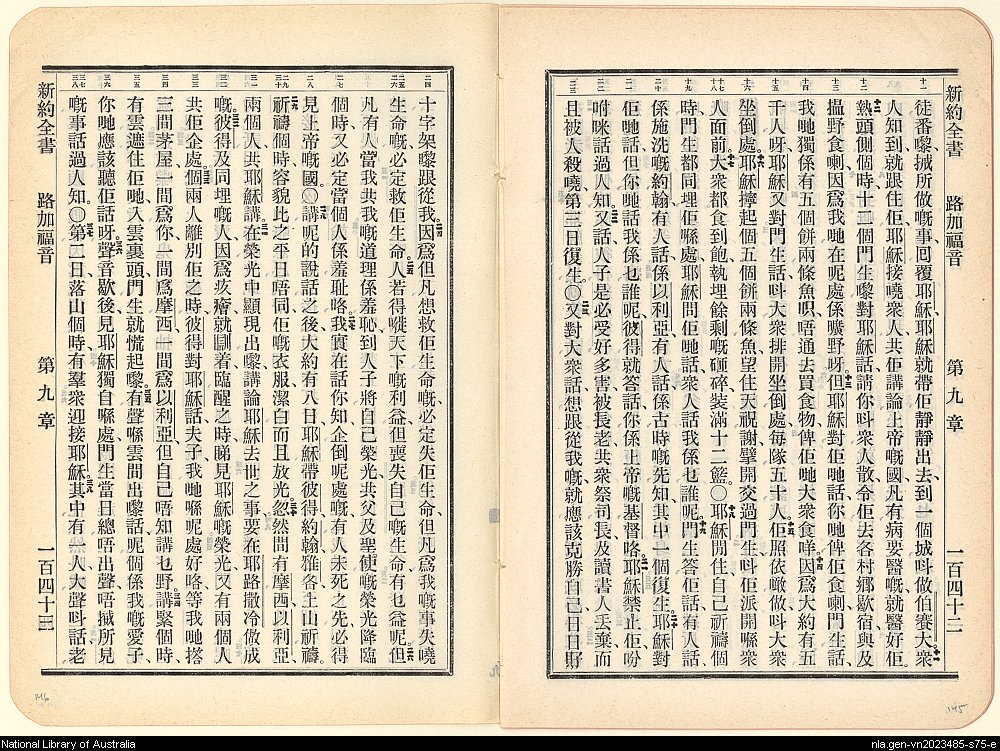 新約全書 路加福音 第九章 一百四十二
徒番嚟搣所做嘅事囘覆耶穌耶穌就帶佢靜靜出去到一個城呌做伯賽大衆
人知到就跟住佢耶穌接嘵衆人共佢講論上帝嘅國凡有病要醫嘅就醫好佢
熱頭側個時十二個門生嚟對耶穌話請你呌衆人散分佢去各村鄉歇宿與及
揾野食喇因爲我哋在呢處係曠野呀但耶穌對佢哋話你哋俾佢食喇門生話
我哋獨係有五個餅兩條魚唄唔通去買食物俾佢哋大衆食咩因爲大約有五
千人呀耶穌又對門生話呌大衆排開坐倒處每隊五十人佢照依噉做呌大衆
坐倒處耶穌擰起個五個餅兩條魚望住天祝謝擘開交過門生呌佢派開喺衆
人面前大衆都食到飽執埋餘剩嘅碎裝滿十二籃〇耶穌閒住自己祈禱個
時門生都同埋佢喺處耶穌問佢哋話衆人話我係乜誰呢門生答佢話有人話
係施洗嘅約翰有人話係以利亞有人話係古時嘅先知其中一個復生耶穌對
佢哋話但你哋話我係乜誰呢彼得就答話你係上帝嘅基督咯耶穌禁止佢吩
咐咪話過人知又話人子是必受好多害被長老共衆祭司長及讀書人丢棄而
且被人殺嘵第三日復生〇又對大衆話想跟從我嘅就應該克勝自己日日孭
十字架嚟跟從我因爲但凡想救佢生命嘅必定失佢生命但凡爲我嘅事失嘵
生命嘅必定救佢生命人若得嘥天下嘅利益但喪失自己嘅生命有乜益呢但
凡有人當我共我嘅道理係羞恥到人子將自己榮光共父及聖使嘅榮光降臨
個時又必定當個人係羞耻咯我實在話你知企倒呢處嘅有人未死之先必得
見上帝嘅國〇講呢的說話之後大約有八日耶穌帶彼得約翰雅各上山祈禱
祈禱個時容貌比之平日唔同佢嘅衣服潔白而且放光忽然間有摩西以利亞
兩個人共耶穌講在榮光中顯現出嚟講論耶穌去世之事要在耶路撒冷做成
嘅彼得及同埋嘅人因爲疚癐就瞓着臨醒之時睇見耶穌嘅榮光又有兩個人
共佢企處個兩人離別佢之時彼得對耶穌話夫子我哋喺呢處好咯等我哋搭
三間茅屋一間爲你一間爲摩西一間爲以利亞但自己唔知講乜野講緊個時
有雲遮住佢哋入雲裏頭門生就慌起嚟有聲喺雲間出嚟話呢個係我嘅愛子
你哋應該聽佢話呀聲音歇後見耶穌獨自喺處門生當日總唔出聲唔搣所見
嘅事話過人知〇第二日落山個時有羣衆迎接耶穌其中有一人大聲呌話老
新約全書 路加福音 第九章 一百四十三
146
145
National Library of Australia
nla.gen-vn2023485-s75-e